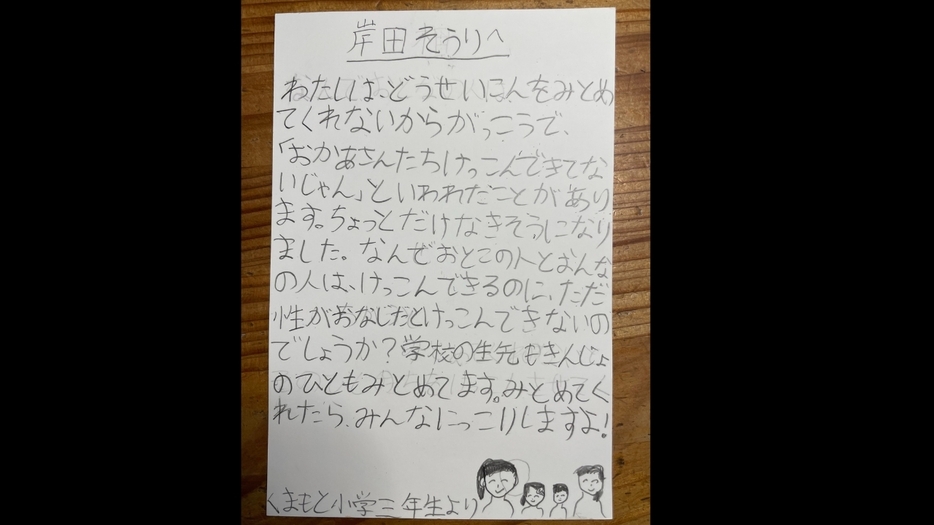 岸田そうりへ
わたしは、どうせいこんをみとめ
てくれないからがっこうで、
「おかあさんたちけっこんできてな
いじゃん」といわれたことがあり
ます。ちょっとだけなきそうになり
ました。なんでおとこの人とおんな
の人は、けっこんできるのに、ただ
性がおなじだとけっこんできないの
でしょうか？学校の生先もきんじょ
のひともみとめてます。みとめてく
れたら、みんなにっこりしますよ！
くまもと小学三年生より